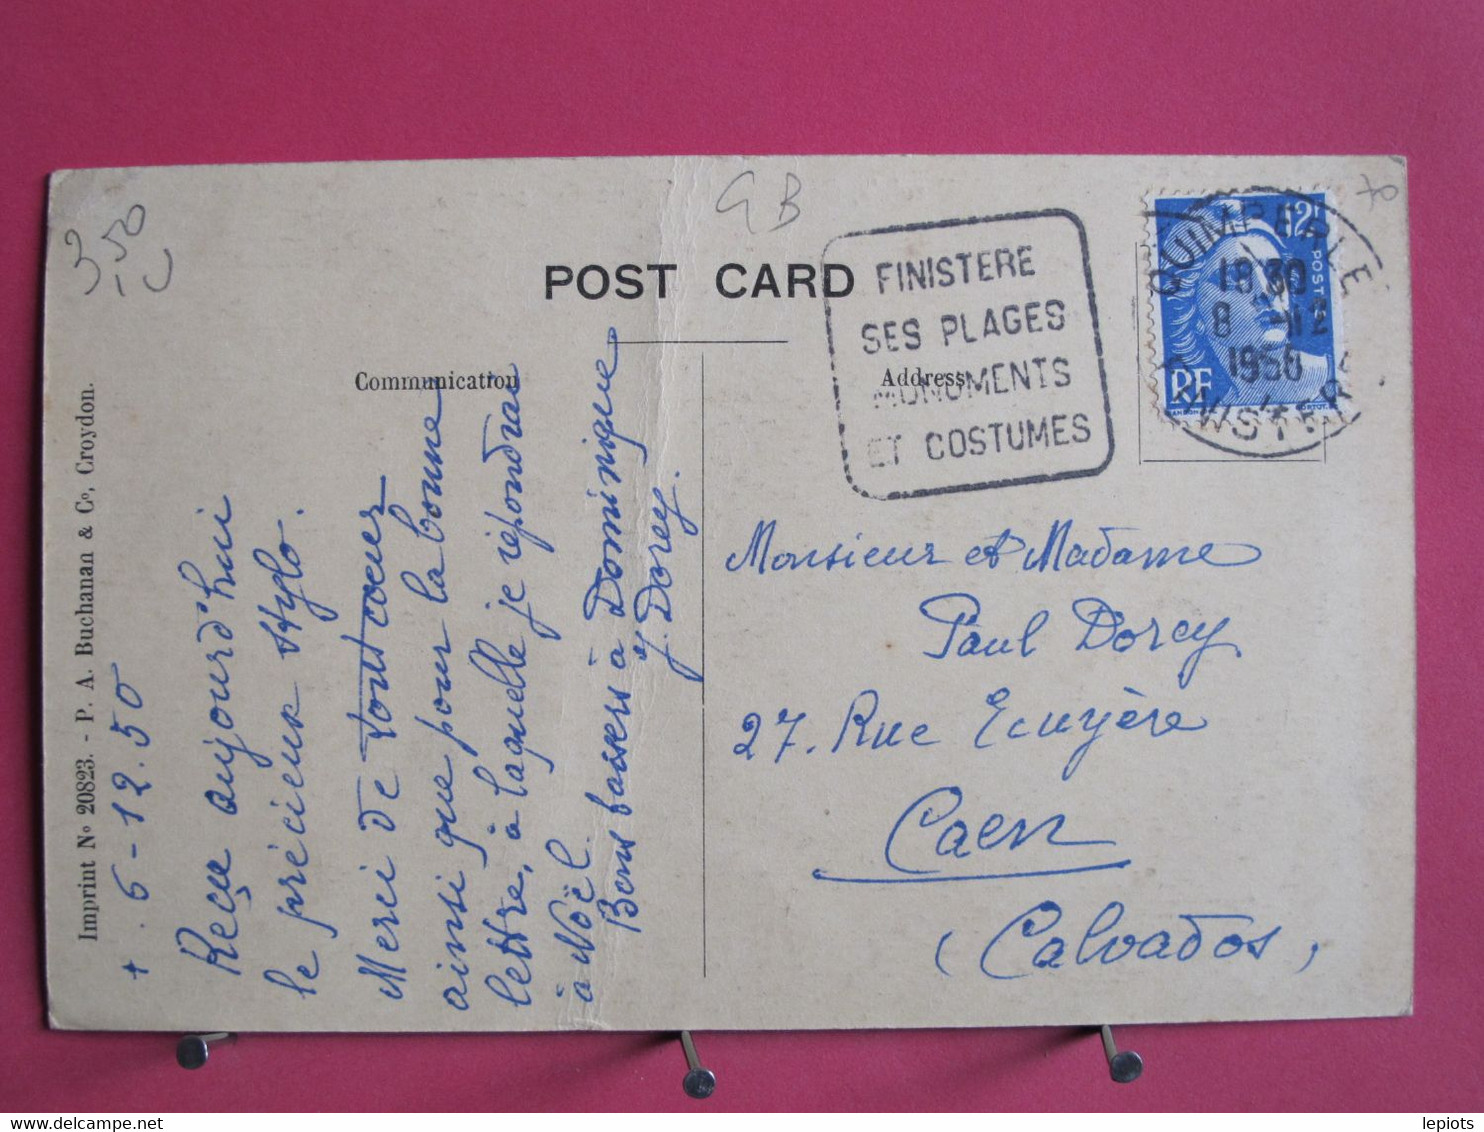 3,50
GB
70
POST CARD
Communication
Address
FINISTERE
SES PLAGES
MONUMENTS
ET COSTUMES
QUIMPERLE
1830
8 -12
1950
FINISTERE
12F
POSTES
RF
Imprint No 20823. - P. A. Buchanan & Co, Croydon.
+ . 6-12.50
Reçu aujourd'hui
le précieux stylo.
Merci de tout coeur
ainsi que pour la bonne
lettre, à laquelle je répondrai
à Noël.
Bons baisers à Dominique
J. Dorey.
Monsieur et Madame
Paul Dorey
27. Rue Ecuyère
Caen
(Calvados)
lepiots
delcampe.net